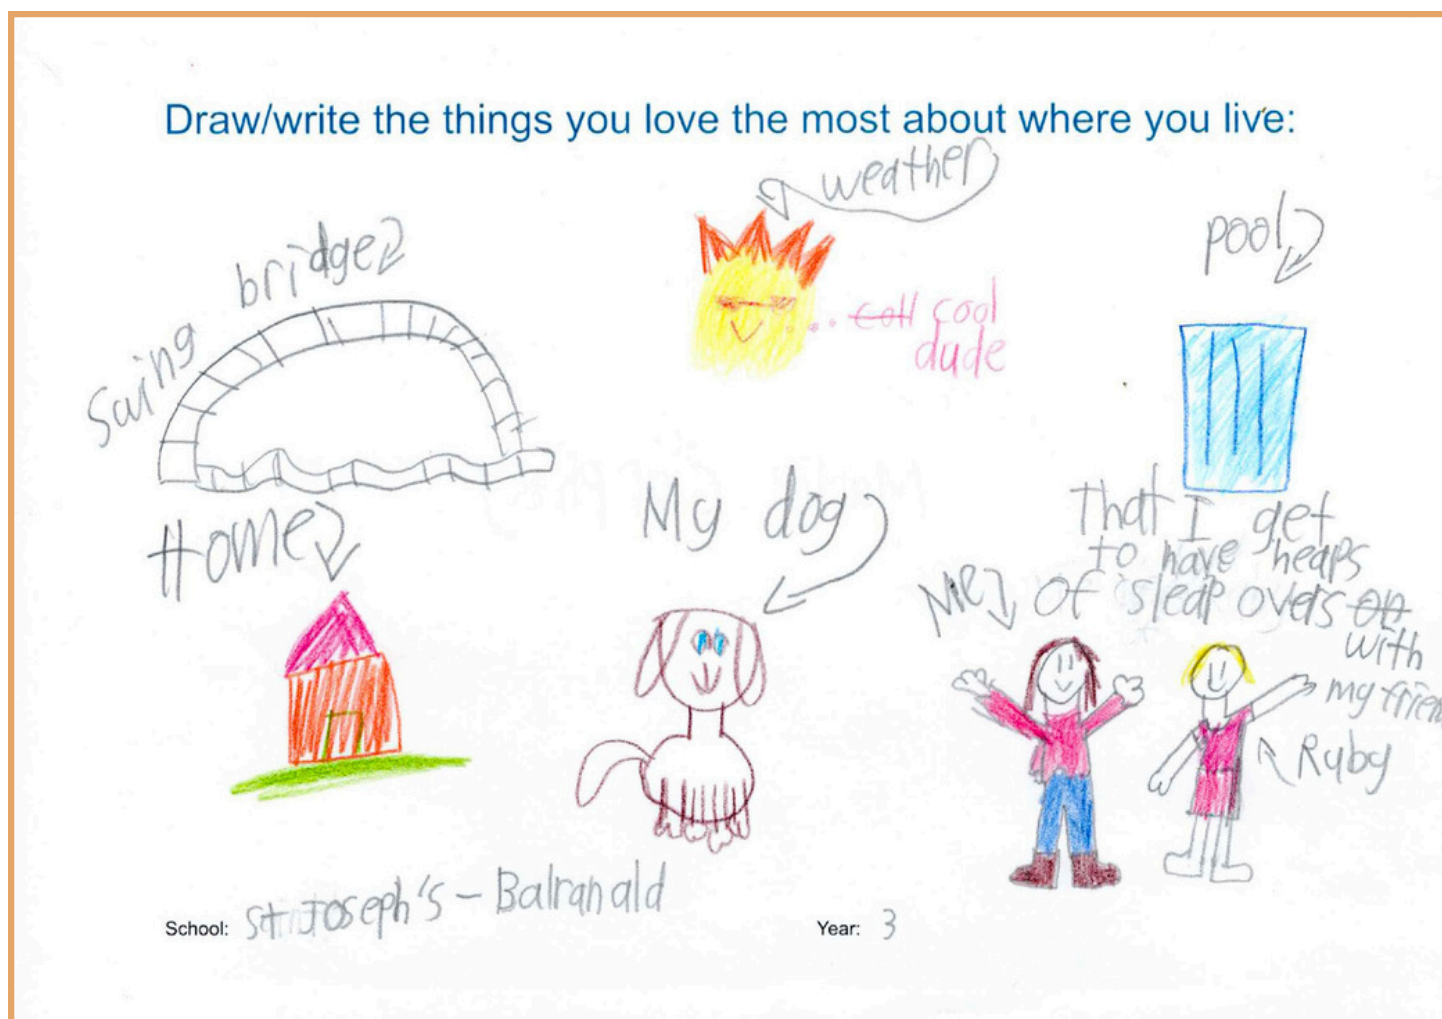 Draw/write the things you love the most about where you live:
weather
swing bridge
pool
coll cool
dude
Home
My dog
That I get
to have heaps
Me of sleap overs on
with
my frien
Ruby
School: St Joseph's - Balranald
Year: 3